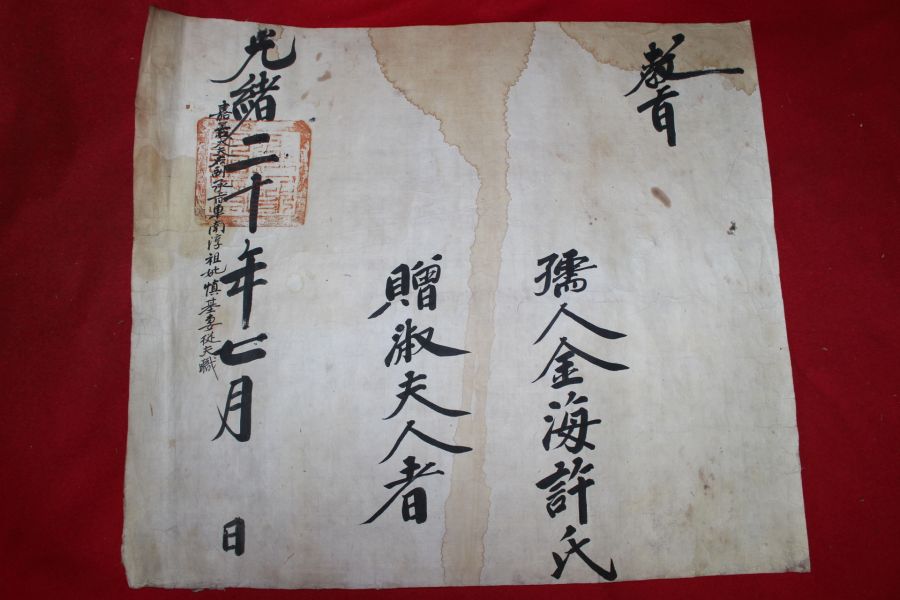 教旨
孺人金海許氏
贈淑夫人者
光緒二十年七月 日
嘉義大夫副承旨車南淳祖妣慎基妻從夫職